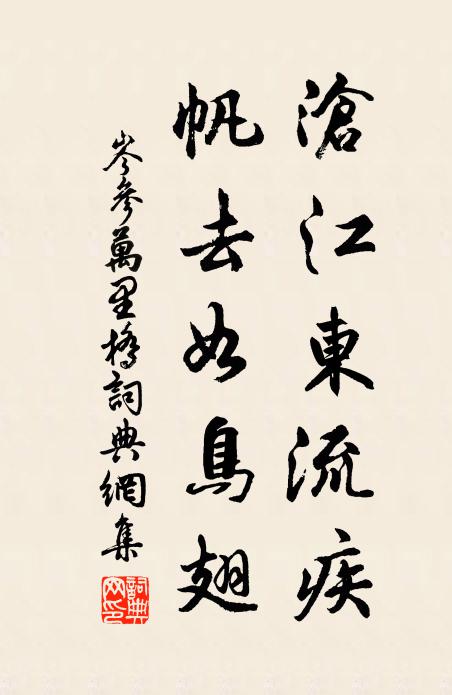 滄江東流疾
帆去如鳥翅
岑參萬里橋詞典網集
詞典網印